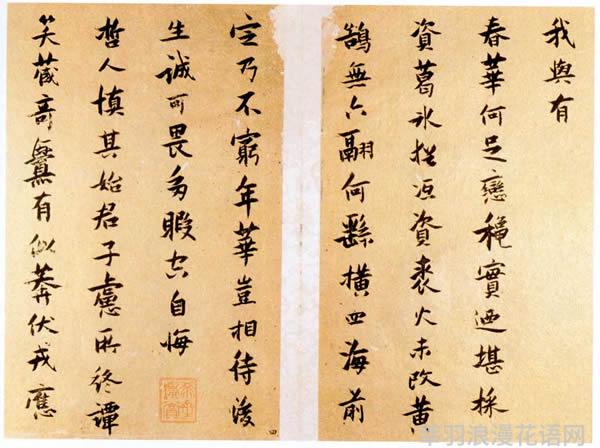 我與有
春華何足戀穐實迺堪採
資葛氷資裘火未改黃
鵠無六翮何繇橫四海前
定乃不窮年華豈相待後
生誠可畏多暇自悔
哲人慎其始君子慮所終譚
笑蔵奇釁有似莽伏戎應
四
羽浪漫花语网